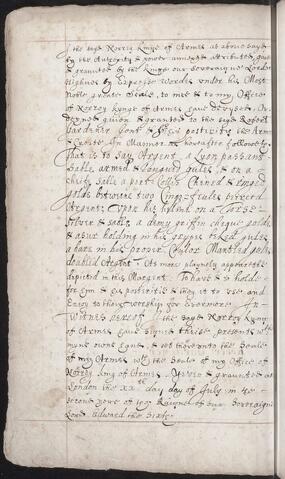 I the sayd Norroy Kinge of Armes as above sayd
by the Authority & power annexed attributed, gyven
& graunted by the Kinge our Soveraigne Lords
Highnes by Expresse Wordes under his Most
noble greate Seale, to mee & to my Office
of Norroy Kynge of Armes have devysed, Or-
deyned given & graunted to the sayd Robert
Gardener Gent & to his posteritie the Armes
& Creste In Manner as hereafter followeth
That is to say Argent a Lyon passant
Sable armed & langued gules, & on a
cheife Sable a
golde betweene two Cinqfoiles pierced
Argent, Upon his helme on a Torse
Silver & sable, a demy griffin gules
& asur holding in his
a hare in his proper Coulor Mantled gules
doubled Argent. As more playnely appeareth
depicted in this Margent To have & to holde
for him & his posteritie & they it to use and
Enjoy to theire worship for Evermore In
Witnes hereof I the sayd Norroy Kynge
of Armes have signed theise presents with
myne owne hand & sett thereunto the Seale
of my Armes with the Seale of my Office of
Norroy King of Armes. Yeven & graunted at
London the xxth day of July in the
second yeare of the Raigne of our Soveraigne
Lord Edward the Sixte